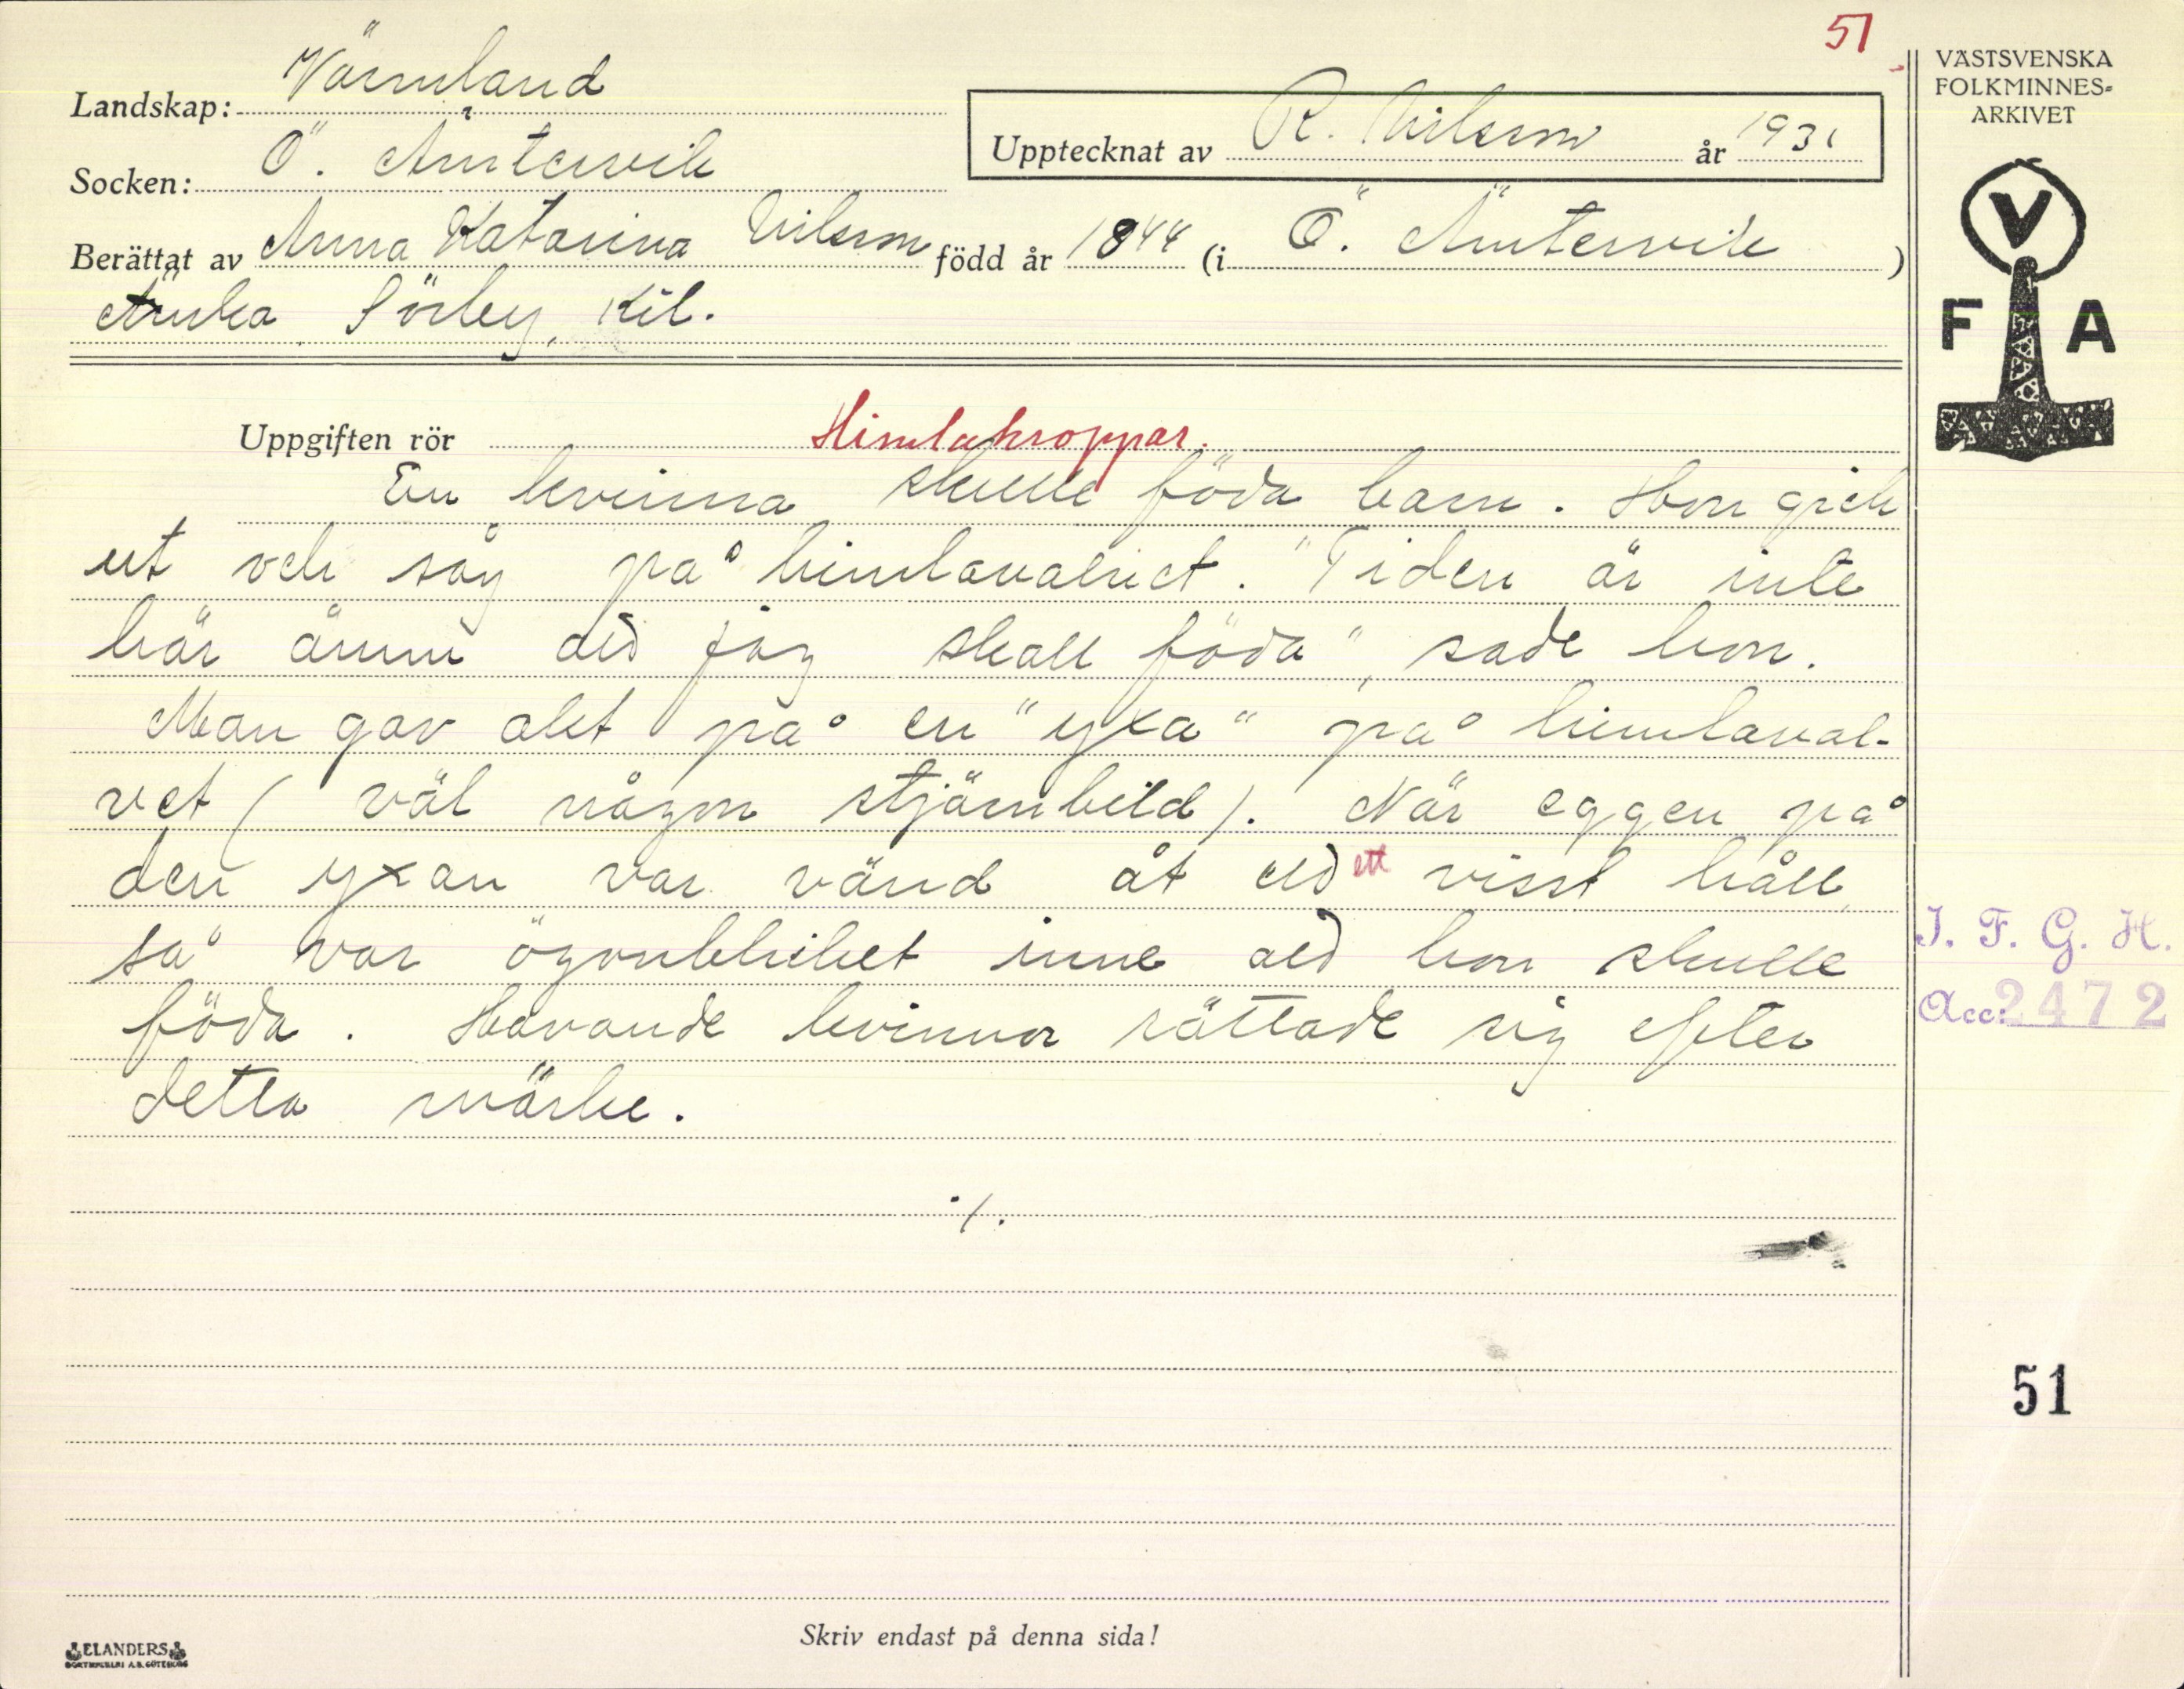 51
VÄSTSVENSKA
FOLKMINNES-
ARKIVET
Landskap: Värmland
Socken: Ö. Ämtervik
Upptecknat av R. Nilsson år 1931
Berättat av Anna Katarina Nilsson född år 1844 (i Ö. Ämtervik)
Änka Sörby, Kil.
V
F A
Uppgiften rör Himlakroppar.
En kvinna skulle föda barn. Hon gick
ut och såg på himlavalvet. "Tiden är inte
här ännu att jag skall föda", sade hon.
Man gav akt på en "yxa" på himlaval-
vet (väl någon stjärnbild). När eggen på
den yxan var vänd åt ett visst håll,
så var ögonblicket inne att hon skulle
föda. Havande kvinnor rättade sig efter
detta märke.
./.
I. F. G. H.
Acc: 2472
51
Skriv endast på denna sida!
ELANDERS
BOKTRYCKERI A.B. GÖTEBORG